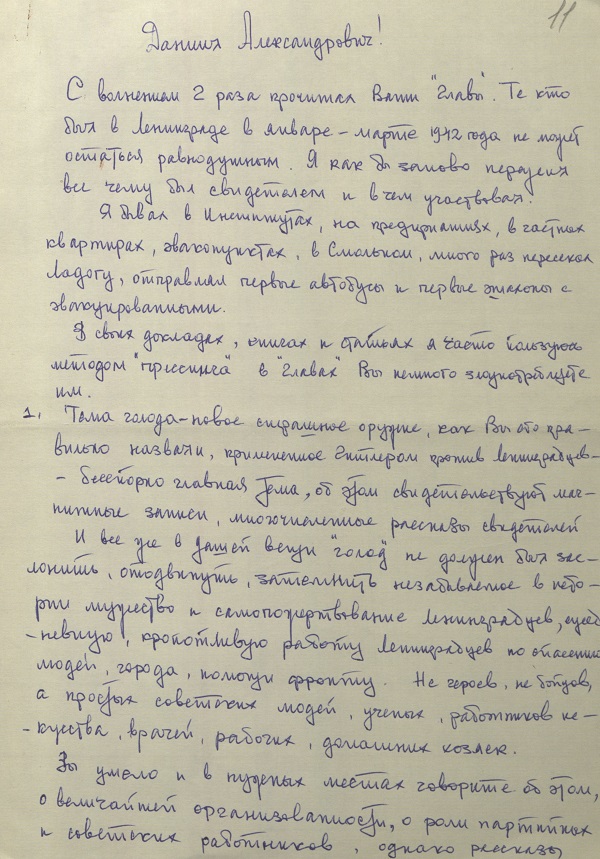 11
Даниил Александрович!
С волнением 2 раза прочитал Ваши "Главы". Те кто
был в Ленинграде в январе – марте 1942 года не может
остаться равнодушным. Я как бы заново пережил
все чему был свидетелем и в чем участвовал.
Я бывал в Институтах, на предприятиях, в частных
квартирах, эвакопунктах, в Смольном, много раз пересекал
Ладогу, отправлял первые автобусы и первые эшелоны с
эвакуированными.
В своих докладах, книгах и статьях я часто пользуюсь
методом "прессинга" в "главах" Вы немного злоупотребляете
им.
1. Тема голода – новое страшное оружие, как Вы это пра-
вильно назвали, примененное Гитлером против Ленинградцев –
– бесспорно главная тема, об этом свидетельствуют маг-
нитные записи, многочисленные рассказы свидетелей
И все же в Вашей вещи "голод" не должен был зас-
лонить, отодвинуть, затемнить незабываемое в исто-
рии мужество и самопожертвование Ленинградцев, ежед-
-невную, кропотливую работу Ленинградцев по спасению
людей, города, помощи фронту. Не героев, не бойцов,
а простых советских людей, ученых, работников ис-
-кусства, врачей, рабочих, домашних хозяек.
Вы умело и в нужных местах говорите об этом,
о величайшей организованности, о роли партийных
и советских работников, однако рассказы